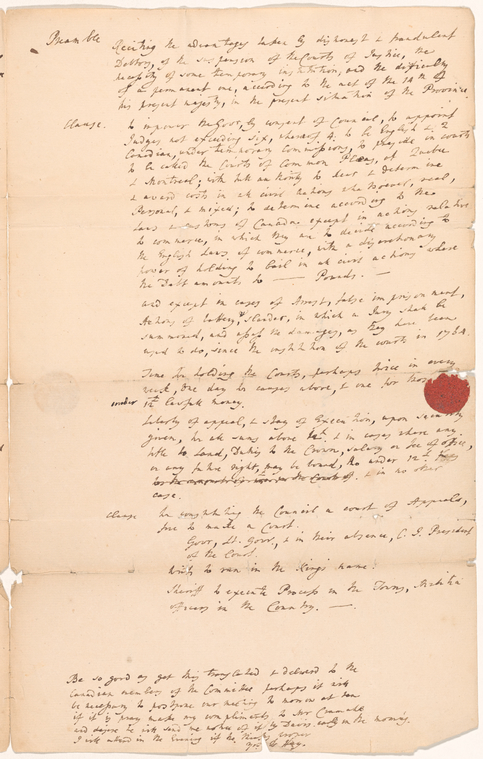 Preamble Reciting the advantages taken by dishonest & fraudulent
Debtors, of the suspension of the Courts of Justice, the
necessity of some temporary institution, and the difficulty
of a permanent one, according to the act of the 14th of
his present majesty, in the present situation of the Province.
Clause. to impower the Govr, by consent of Council, to appoint
Judges not exceeding Six, whereof 4 to be English & 2
Canadian, under temporary Commissions, to preside in courts
to be called the Courts of Common Pleas, at Quebec
& Montreal; with authority to hear & determine
& award costs in all civil actions whatsoever, real,
Personal, & mixed; to determine according to the
laws & customs of Canada except in actions relative
to commerce, in which they are to decide according to
the English laws of commerce, with a discretionary
power of holding to bail in all civil actions whose
the Debt amounts to —— Pounds. —
and except in cases of Arrest, false imprisonment,
Actions of battery, & Slander, in which a Jury shall be
summoned, and assess the damages, as they have been
used to do, since the institution of the courts in 1764.
Time for holding the Courts, perhaps twice in every
week, one day for causes above, & one for those
under lawful money.
Liberty of appeal, & stay of Execution, upon security
given, for all sums above & in cases where any
title to Land, Duty to the Crown, salary or fee of office,
or any future right, may be bound, tho under
& in no other
case.
Clause for constituting the Council a court of Appeals,
five to make a Court.
Govr, Lt. Govr, & in their absence, C. J. President
of the Court.
Writs to run in the King's name.
Sheriff to execute Process in the Towns, Militia
officers in the Country. —
Be so good as get this translated & delivered to the
Canadian members of the Committee perhaps it will
be necessary to postpone our meeting to morrow at
if it is pray make my compliments to Mr
and desire he will send me notice of it by Davis early in the morning.
I will attend in the Evening if he thinks proper